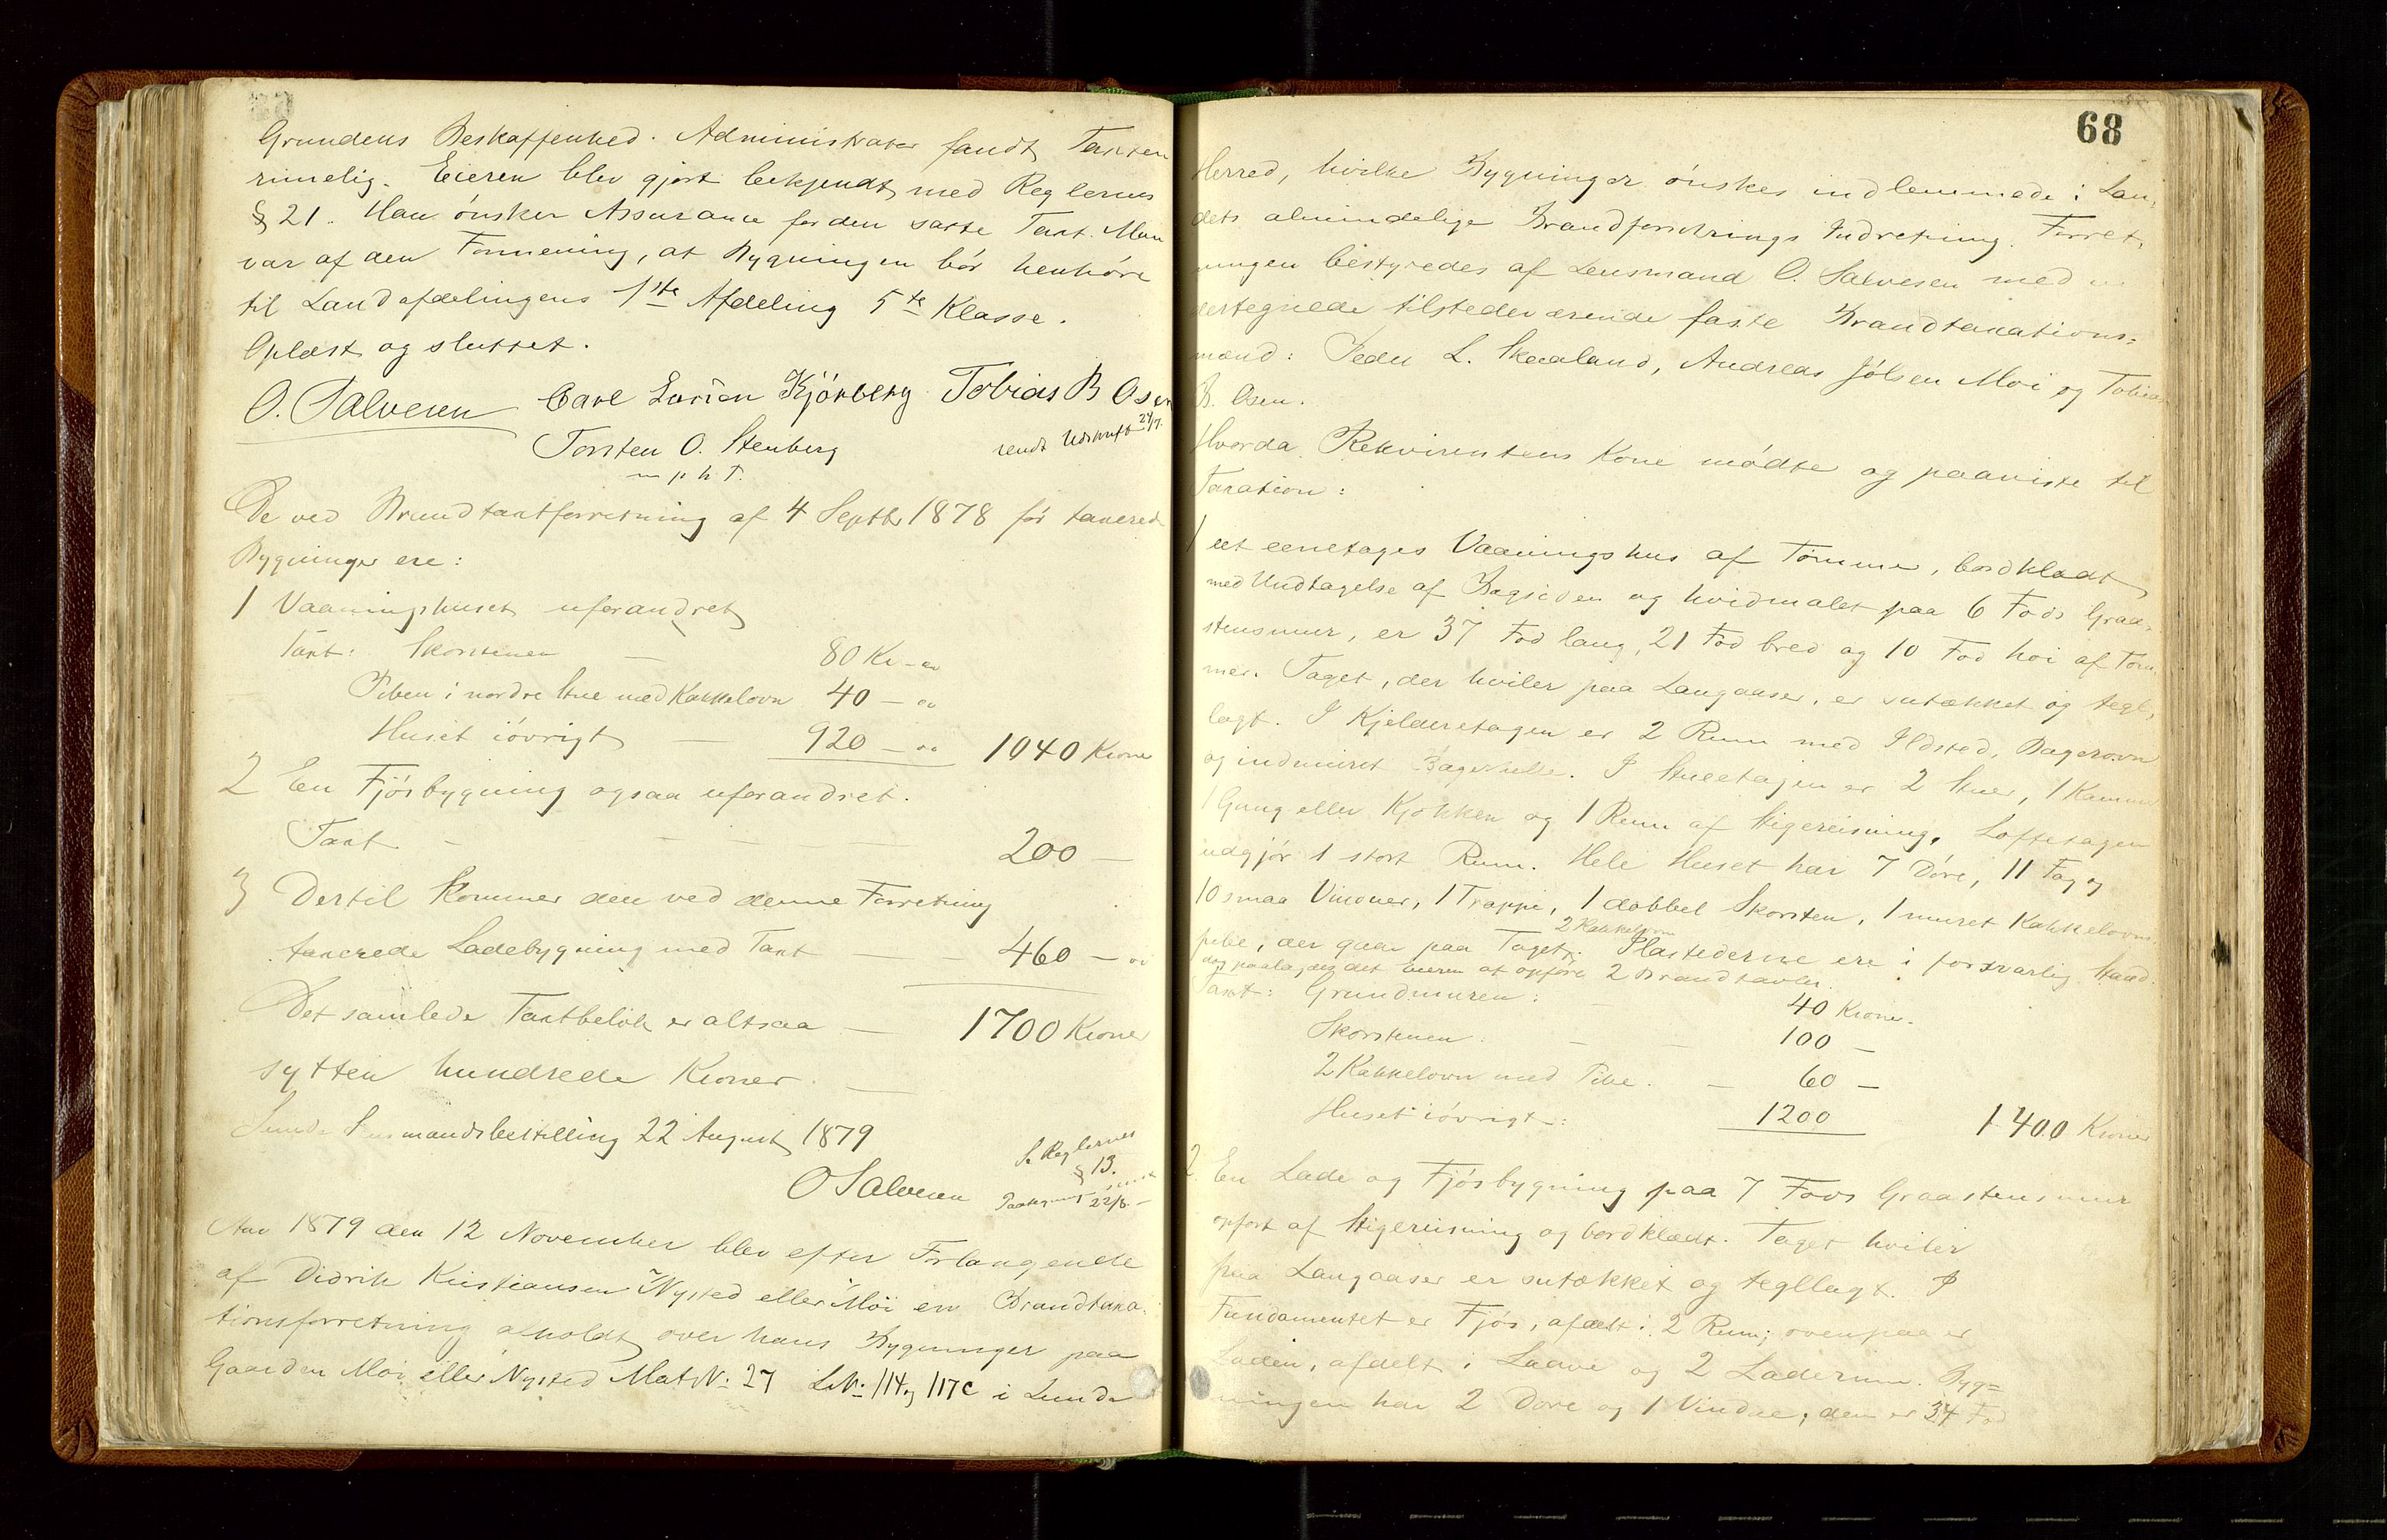 Grundens Beskaffenhed. Administrator fandt Taxten
rimelig. Eieren blev gjort bekjendt med Reglernes
§ 21. Han ønsker Assurance for den satte Taxt. Man
var af den Formening, at Bygningen bør henhøre
til Landafdelingens 1ste Afdeling 5te Klasse.
Oplæst og sluttet.
O. Salvesen Carl Kjörberg Tobias B Osen
Torsten O. Stenberg
m p h P.
sendt Udskrift 24/9.
De ved Brandtaxtforretning af 4 Septbr 1878 før taxerede
Bygninger ere:
1 Vaaningshuset uforandret
Taxt: Skorstenen — 80 Kr - "
Piben i nordre Stue med Kakkelovn 40 — "
Huset iøvrigt — 920 — " 1040 Kroner
2 En Fjøsbygning ogsaa uforandret.
Taxt - — — — 200 —
3 Dertil kommer den ved denne Forretning
taxerede Ladebygning med Taxt — - 460 — "
Det samlede Taxtbeløb er altsaa — 1700 Kroner
sytten hundrede Kroner. —
Lunde Lensmandsbestilling 22 August 1879
O Salvesen
Se Reglernes
§ 13.
22/8 -
Aar 1879 den 12 November blev efter Forlangende
af Didrik Kristiansen Nysted eller Moi en Brandtaxa-
tionsforretning afholdt over hans Bygninger paa
Gaarden Moi eller Nysted Mat N: 27 LN: 114 og 117c i Lunde
68
Herred, hvilke Bygninger ønskes indlemmede i Lan-
dets almindelige Brandforsikrings Indretning. Forret-
ningen bestyredes af Lensmand O. Salvesen med un
dertegnede tilstedeværende faste Brandtaxations-
mænd: Peder L. Skaaland, Andreas Jølsen Moi og Tobias
B. Osen.
Hvorda Rekvirentens Kone mødte og paaviste til
Taxation:
1 eet eenetages Vaaningshus af Tømmer, bordklædt
med Undtagelse af Bagsiden og hvidmalet paa 6 Fods Graa-
stensmur, er 37 Fod lang, 21 Fod bred og 10 Fod høi af Tøm
mer. Taget, der hviler paa Langaaser, er sutækket og tegl-
lagt. I Kjelderetagen er 2 Rum med Ildsted, Bagerovn
og indmuret Bagerhelle. I Stueetagen er 2 Stuer, 1 Kammer
1 Gang eller Kjøkken og 1 Rum af Stigereisning. Loftetagen
udgjør 1 stort Rum. Hele Huset har 7 Døre, 11 Fag og
10 smaa Vinduer, 1 Trappe, 1 dobbel Skorsten, 1 muret Kakkelovns-
2 Kakkelovne
pibe, der gaar paa Taget. Ildstederne ere i forsvarlig Stand.
dog paalagdes det Eieren at opføre 2 Brandtavler.
Taxt: Grundmuren: - 40 Kroner.
Skorstenen. - — 100 —
2 Kakkelovn med Pibe. — 60 —
Huset iøvrigt: 1200 1400 Kroner
2. En Lade og Fjøsbygning paa 7 Fods Graastensmur
opført af Stigereisning og bordklædt. Taget hviler
paa Langaaser er sutækket og tegllagt. I
Fundamentet er Fjøs, afdelt i 2 Rum; ovenpaa er
Laden, afdelt i Laave og 2 Laderum. Byg-
ningen har 2 Døre og 1 Vindue; den er 34 Fod